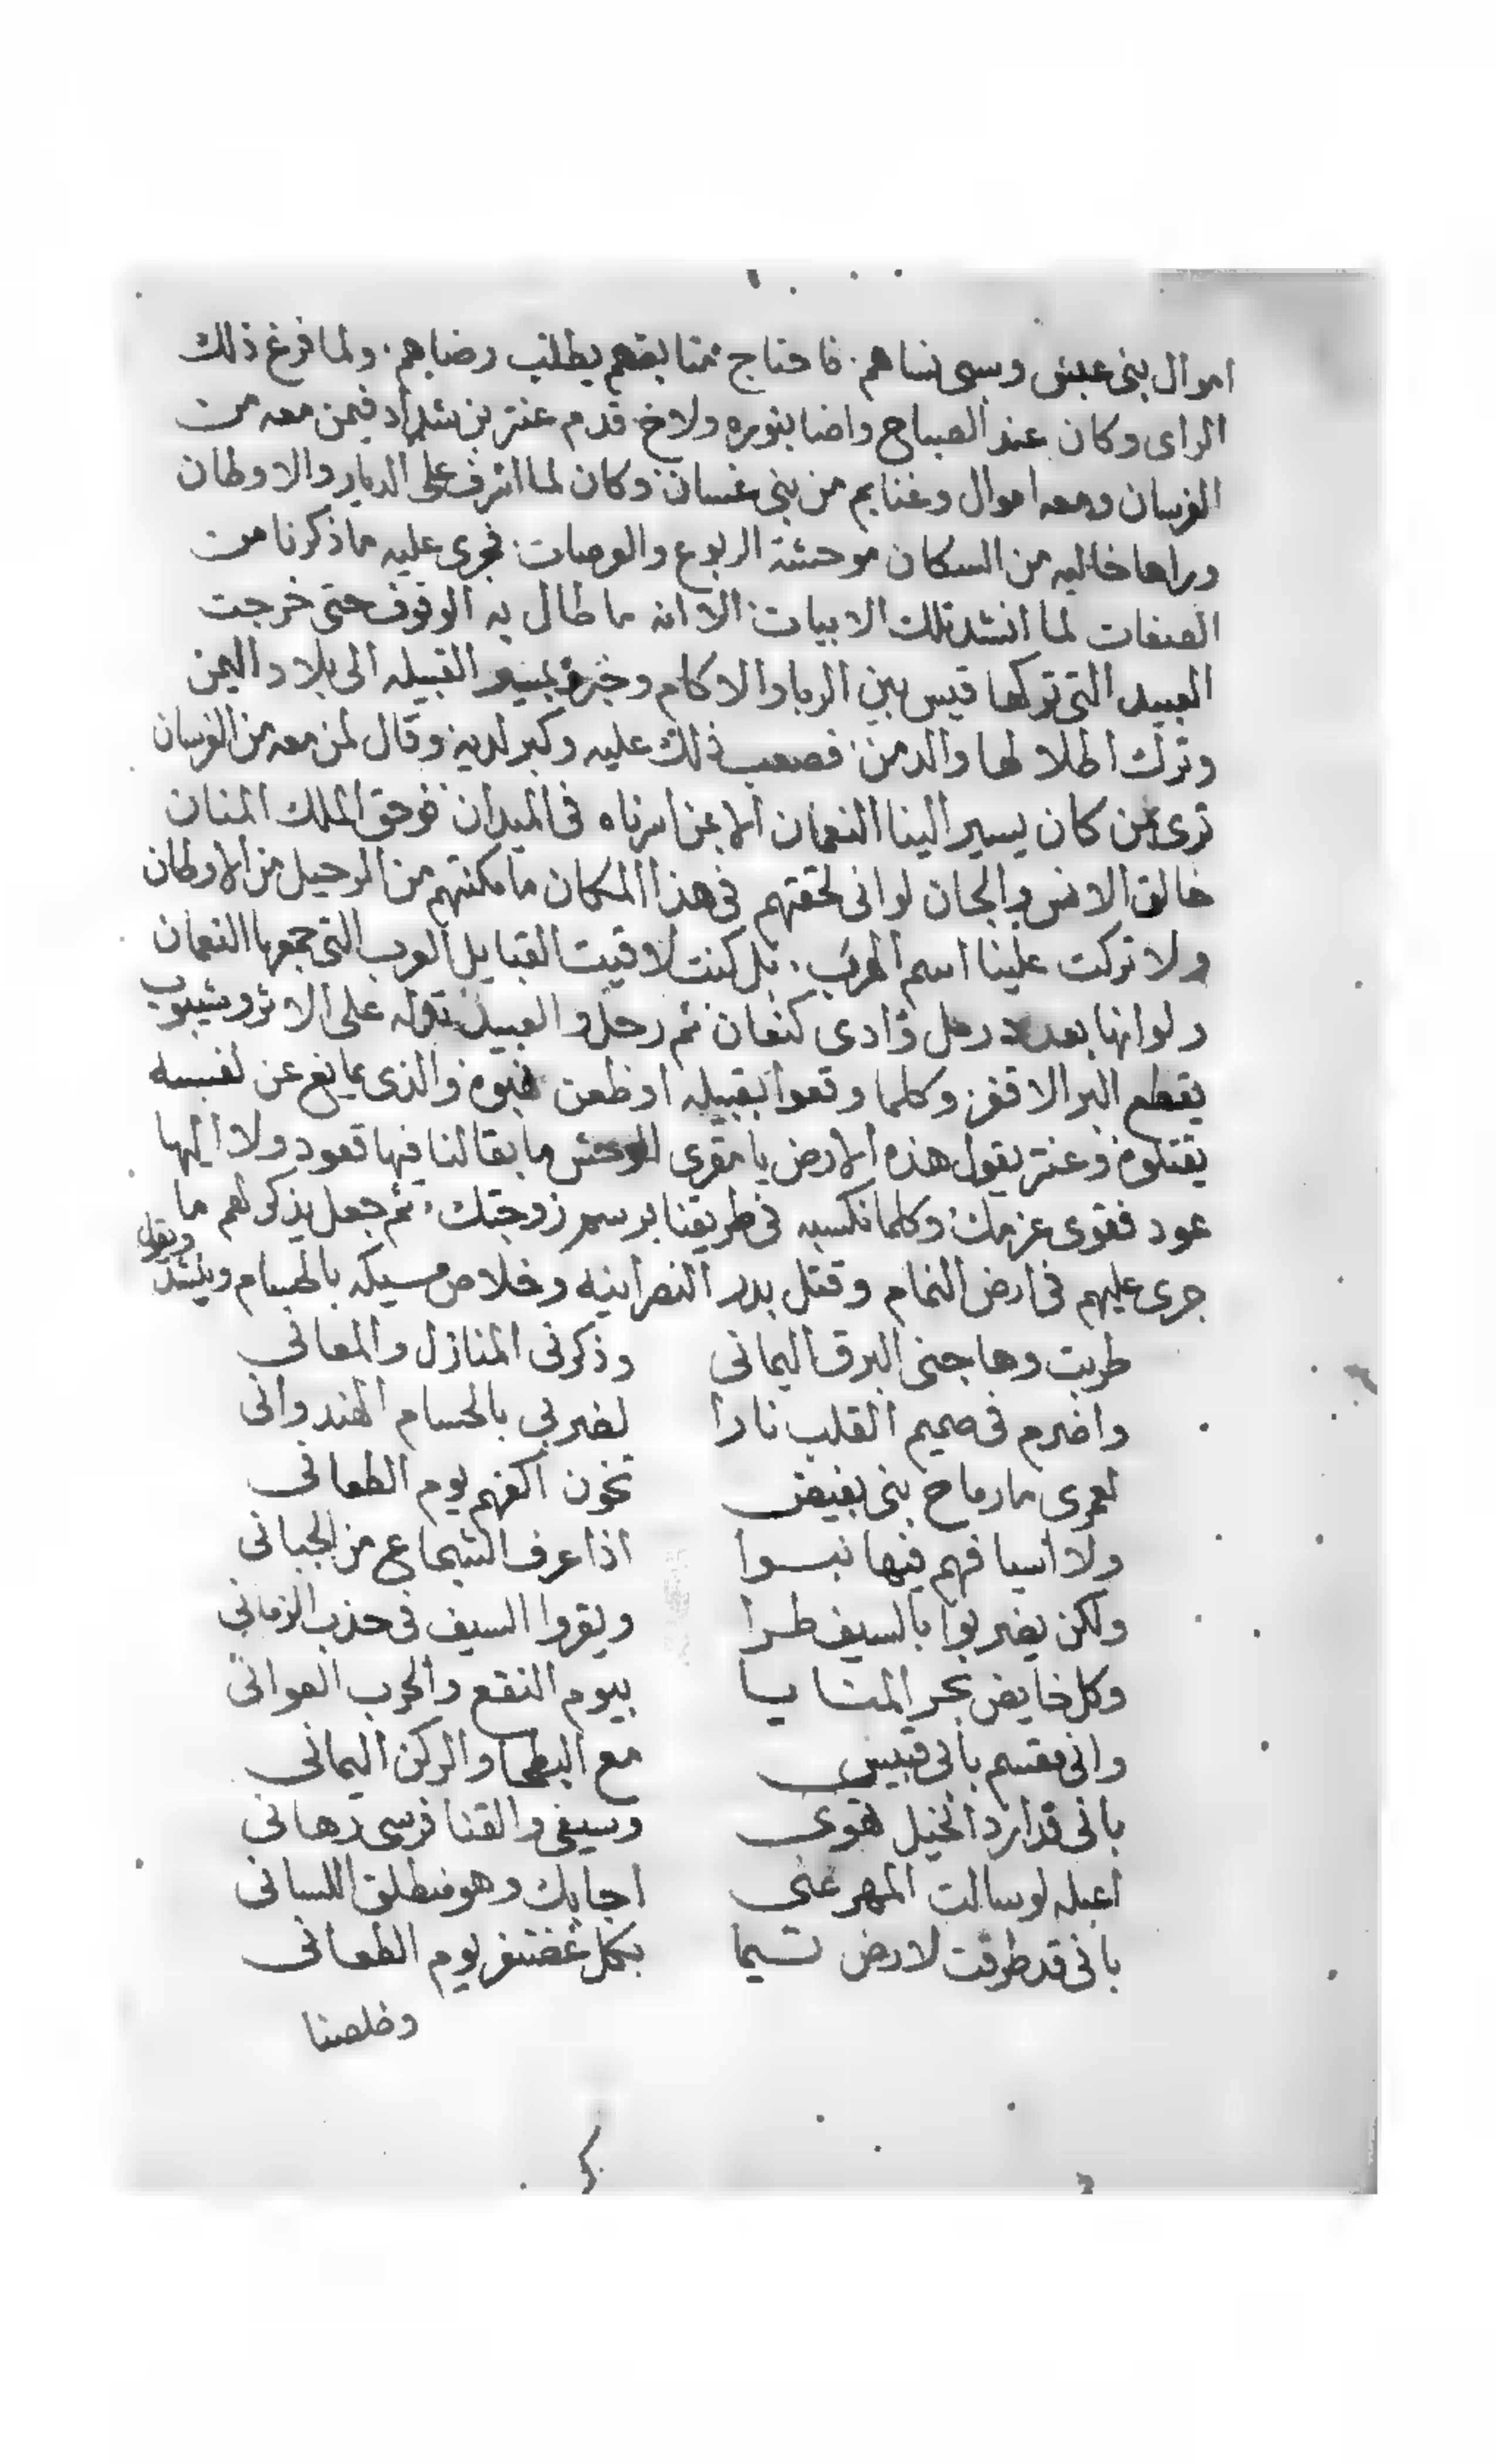 اموال بنى عبس وسبى نساهم . فاحتاج يطلب رضاهم . ولما فرغ ذلك
الراى وكان عند الصباح واضا بنوره ولاح . قدم عنتر بن شداد فيمن معه من
الفرسان ومعه اموال وغنايم من بنى غسان . وكان لما اشرف على الديار والاوطان
وراها خاليه من السكان موحشة الربوع والعرصات . فجرى عليه ما ذكرنا من
الصفات لما انشد تلك الابيات . الا انه ما طال به الوقوف حتى خرجت
العبيد التى تركها قيس بين الربا والاكام بمسير القبيله الى بلاد اليمن
وترك اطلالها والدمن . فصعب ذلك عليه وكبر لديه . وقال لمن معه من الفرسان
ترى من كان يسير الينا النعمان الا من اسرناه فى الميدان فوحق الملك المنان
خالق الانس والجان لو انى لحقتهم فى هذا المكان ما مكنتهم من الرحيل من الاوطان
ولا تركت علينا اسم الهرب . بل كنت لاقيت القبايل العرب التى جمعها النعمان
ولو انها بعدد رمل وادى كنعان ثم رحلوا العبيد تدله على الاثر وشيبوب
يقطع البر الاقفر وكلما وقعوا بقبيله او ظعن نهبوه والذى يمانع عن نفسه
يقتلوه وعنتر يقول هذه الارض يا مقرى الوحش ما بقا لنا فيها قعود ولا اليها
عود فقوى عزمك وكلما نكسبه فى طريقنا برسم زوجتك . ثم جعل يذكر لهم ما
جرى عليهم فى ارض الشام وقتل بدر النصرانيه وخلاص مسيكه بالحسام وينشد
ويقول
طربت وهاجنى البرق اليمانى وذكرنى المنازل والمعانى
واضرم فى صميم القلب نارا لضربى بالحسام الهندوانى
لعمرى ما رماح بنى بغيض تخون اكفهم يوم الطعانى
ولا اسيافهم فيها نبوا اذا عرف الشجاع من الجبانى
ولكن يضربوا بالسيف طرا ويقروا السيف فى حذب الزمانى
وكل خايض بحر المنايا بيوم النقع والحرب العوانى
وانى مقسم بابى قبيس مع البطحا والركن اليمانى
بانى قد ارد الخيل تهوى وسيفى والقنا فرسى رهانى
اعبله لو سالت المهر عنى اجابك وهو منطلق اللسانى
بانى قد طرقت لارض تيما بكل غضنفر يوم الطعانى
وخلصنا